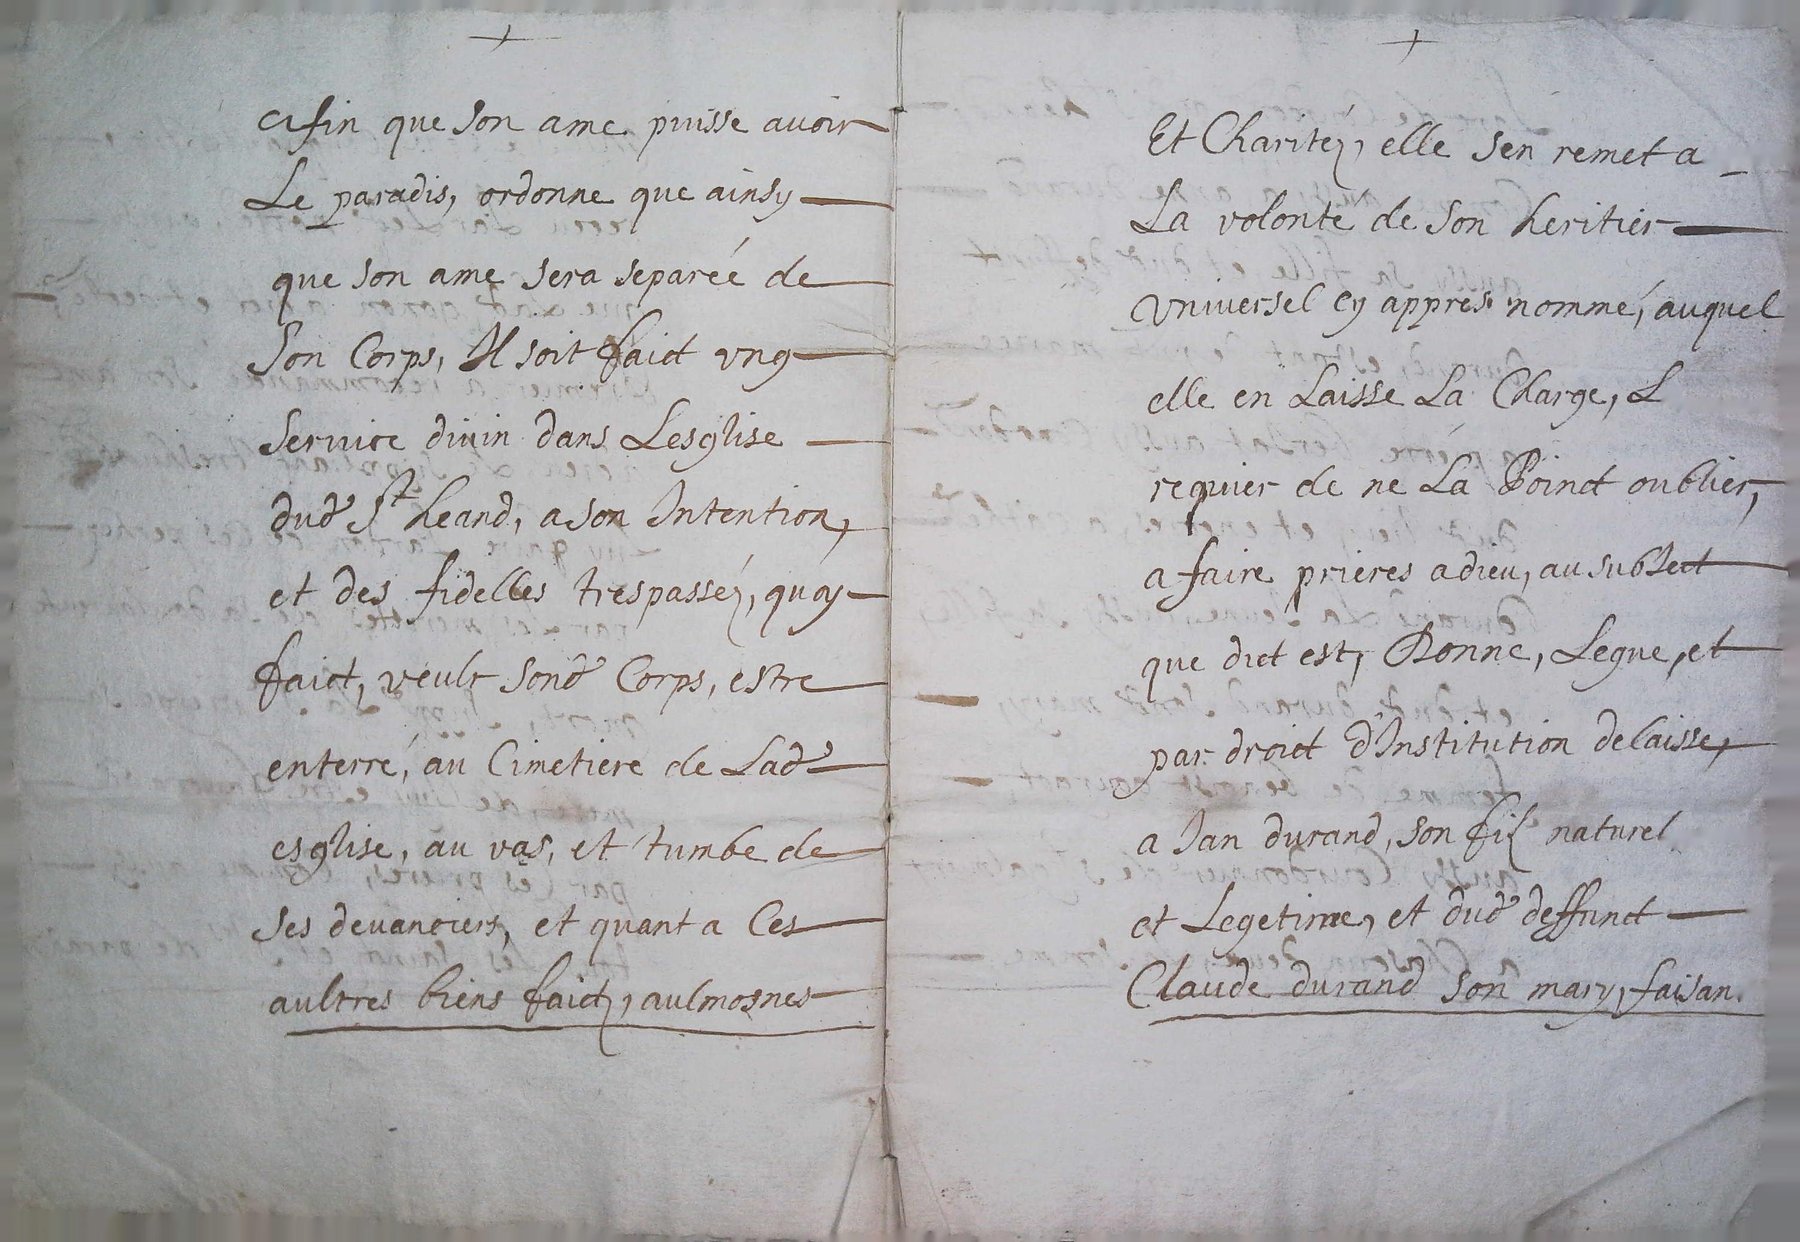 afin que son ame puisse avoir
Le paradis, ordonne que ainsy
que son ame sera separéé de
Son Corps, Il soit faict vng
Service divin dans Lesglise
dud St heand, a son Intention,
et des fidelles trespasséz, quoy
faict, veult sond Corps, estre
enterré, au Cimetiere de Lad
esglise, au vas, et tumbe de
Ses devanciers, et quant a Ces
aultres biens faictz, aulmosnes
Et Charitéz, elle s'en remet a
La volonte de son heritier
Vniversel cy appres nommé, auquel
elle en Laisse La Charge, L
requier de ne La Poinct oublier,
a faire prieres a dieu, au subject
que dict est, Donne, Legue, et
par droict d'Institution delaisse,
a Jan durand, son filz naturel
et Legetime, et dud deffunct
Claude durand son mary, faisan